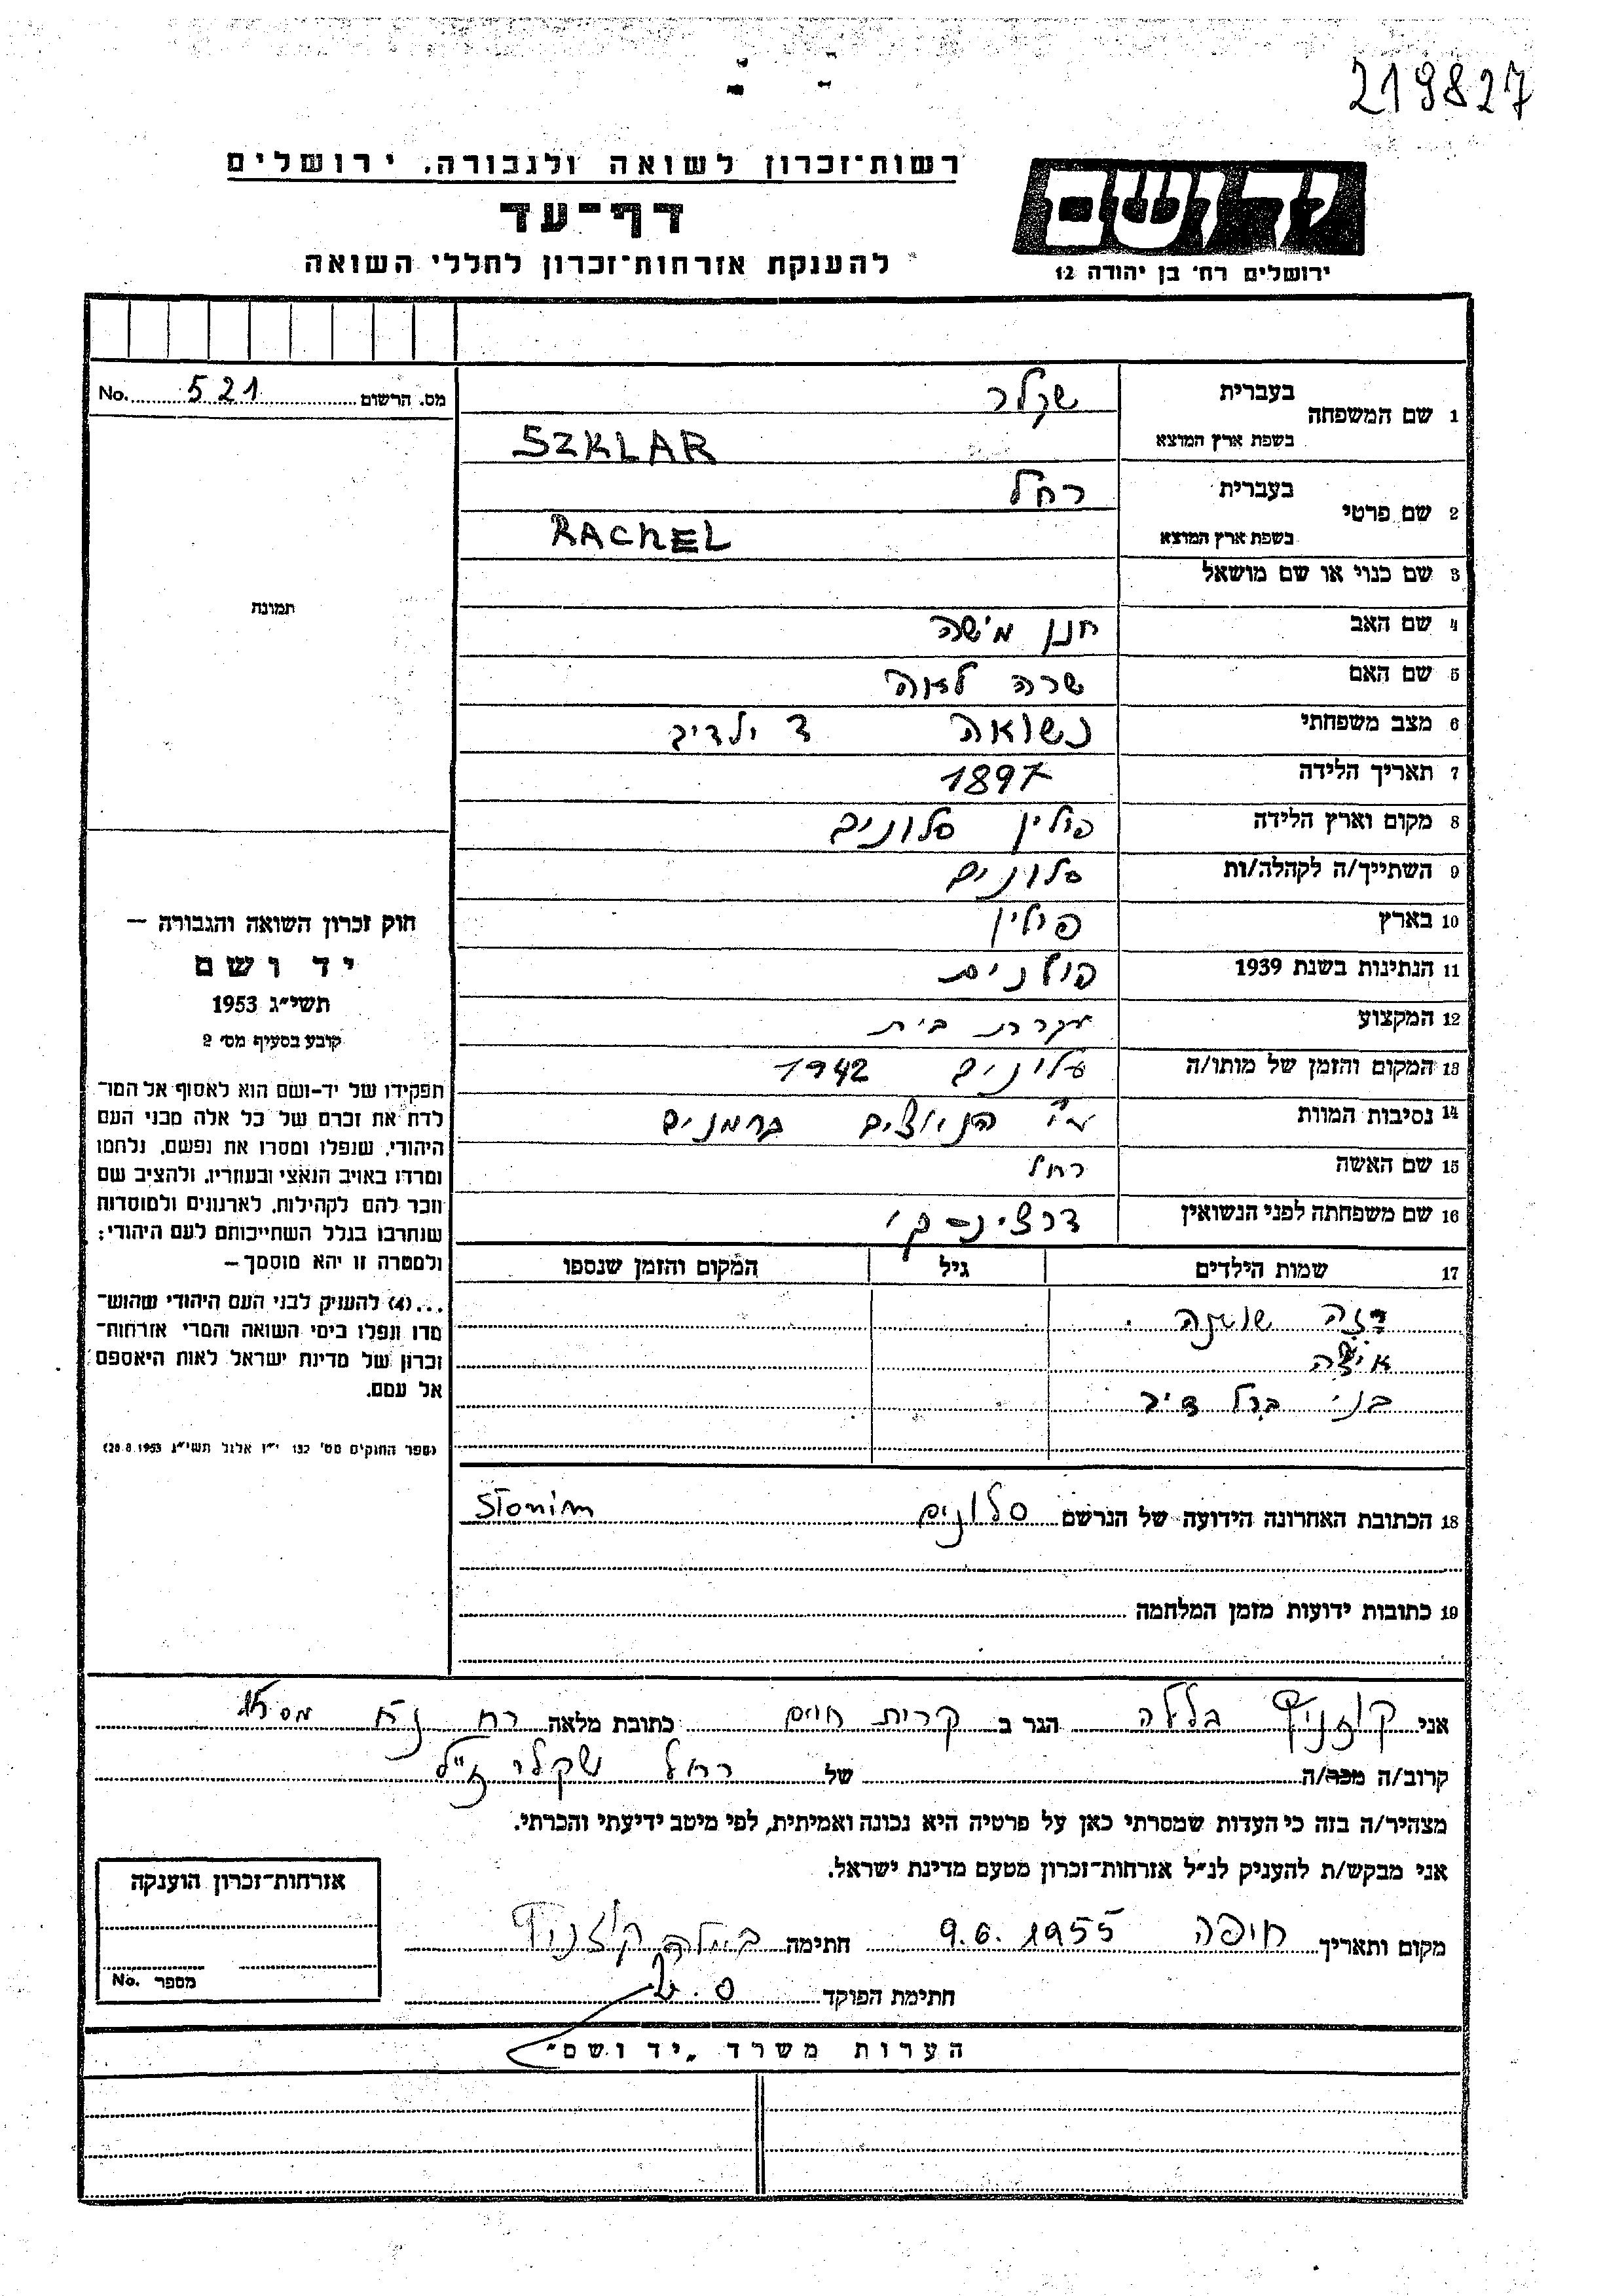 219827
רשות־זכרון לשואה ולגבורה, ירושלים
דף־עד
להענקת אזרחות־זכרון לחללי השואה
יד ושם
ירושלים רח' בן יהודה 12
מס. הרשום 521 No.
1 שם המשפחה
בעברית שקלר
בשפת ארץ המוצא SZKLAR
2 שם פרטי
בעברית רחל
בשפת ארץ המוצא RACHEL
3 שם כנוי או שם מושאל
4 שם האב חנן מישה
5 שם האם שרה לאה
6 מצב משפחתי נשואה ילדים
7 תאריך הלידה 1897
8 מקום וארץ הלידה פולין סלונים
9 השתייך/ה לקהלה/ות סלונים
10 בארץ פולין
11 הנתינות בשנת 1939 פולנית
12 המקצוע עקרת בית
13 המקום והזמן של מותו/ה סלונים 1942
14 נסיבות המוות ע"י הנאצים גרמנים
15 שם האשה רחל
16 שם משפחתה לפני הנשואין
17 שמות הילדים גיל המקום והזמן שנספו
שושנה
18 הכתובת האחרונה הידועה של הנרשם סלונים Słonim
19 כתובות ידועות מזמן המלחמה
תמונה
חוק זכרון השואה והגבורה —
יד ושם
תשי״ג 1953
קובע בסעיף מס׳ 2
תפקידו של יד-ושם הוא לאסוף אל המו־
לדת את זכרם של כל אלה מבני העם
היהודי, שנפלו ומסרו את נפשם, נלחמו
ומרדו באויב הנאצי ובעוזריו, ולהציב שם
וזכר להם לקהילות, לארגונים ולמוסדות
שנחרבו בגלל השתייכותם לעם היהודי;
ולמטרה זו יהא מוסמך —
...(4) להעניק לבני העם היהודי שהוש־
מדו ונפלו בימי השואה והמרי אזרחות־
זכרון של מדינת ישראל לאות היאספם
אל עמם.
(ספר החוקים מס׳ 132 י״ז אלול תשי״ג 28.8.1953)
אני בלילה הגר ב קרית חיים כתובת מלאה רח
קרוב/ה מכר/ה של רחל שקלר ז"ל
מצהיר/ה בזה כי העדות שמסרתי כאן על פרטיה היא נכונה ואמיתית, לפי מיטב ידיעתי והכרתי.
אני מבקש/ת להעניק לנ״ל אזרחות־זכרון מטעם מדינת ישראל.
מקום ותאריך חיפה 9.6.1955 חתימה
חתימת הפוקד
אזרחות־זכרון הוענקה
מספר No.
הערות משרד „יד ושם״